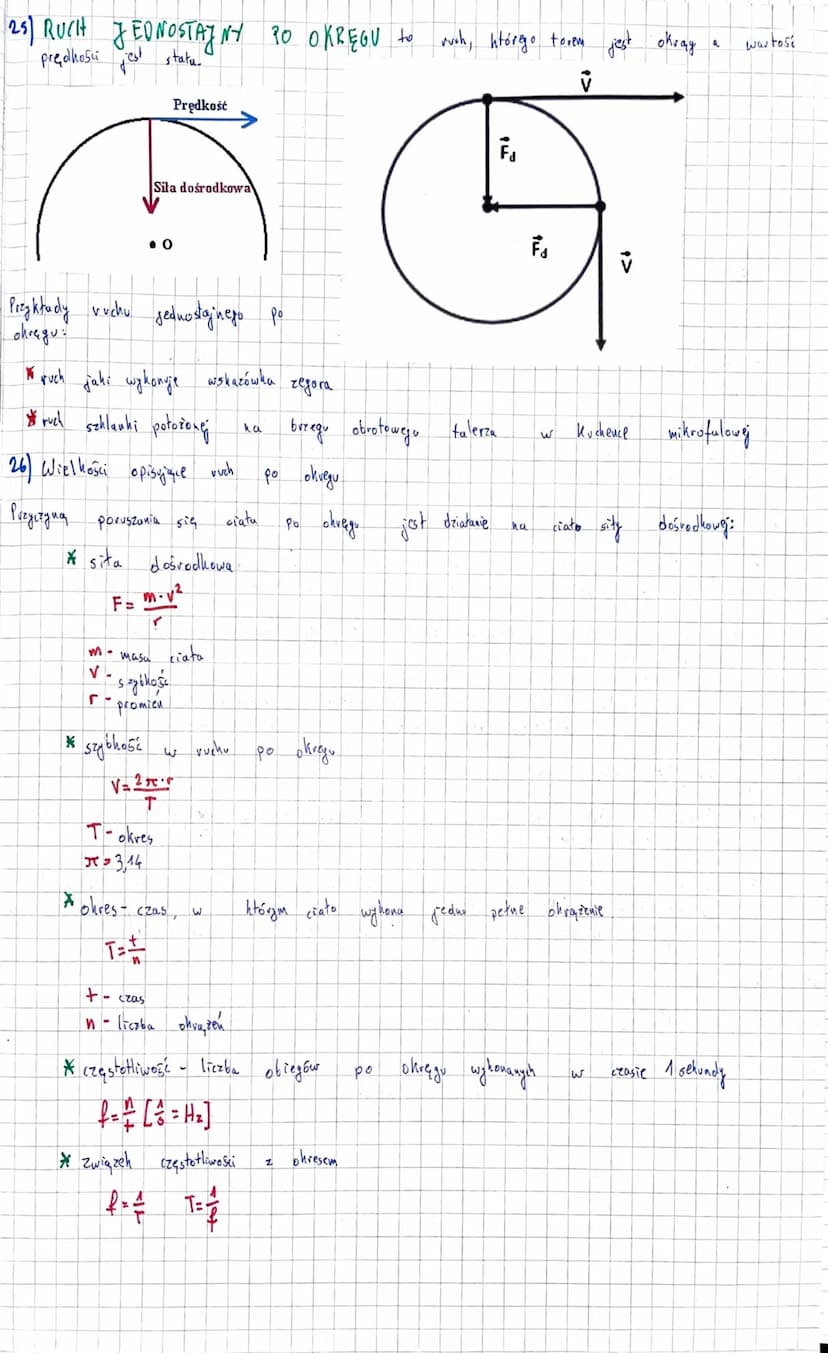 25) RUCH JEDNOSTAJNY PO OKRĘGU to ruch, którego torem jest okrąg a wartość
prędkości jest stała.
Prędkość
Siła dośrodkowa
O
V
Fd
Fd
V
Przykłady ruchu jednostajnego po
okręgu:
* ruch jaki wykonuje wskazówka zegara
* ruch szklanki położonej na brzegu obrotowego talerza w kuchence mikrofulowej
26) Wielkości opisujące ruch po okręgu
Przyczyną poruszania się ciała po okręgu jest działanie na ciało siły dośrodkowej:
* siła dośrodkowa
F = m·v²/r
m - masa ciała
V - szybkość
r - promień
* szybkość w ruchu po okręgu
V = 2π·r/T
T - okres
π = 3,14
* okres - czas, w którym ciało wykona jedno pełne okrążenie
T = t/n
t - czas
n - liczba okrążeń
* częstotliwość - liczba obiegów po okręgu wykonanych w czasie 1 sekundy
f = n/t [1/s = Hz]
* związek częstotliwości z okresem
f = 1/T T = 1/f